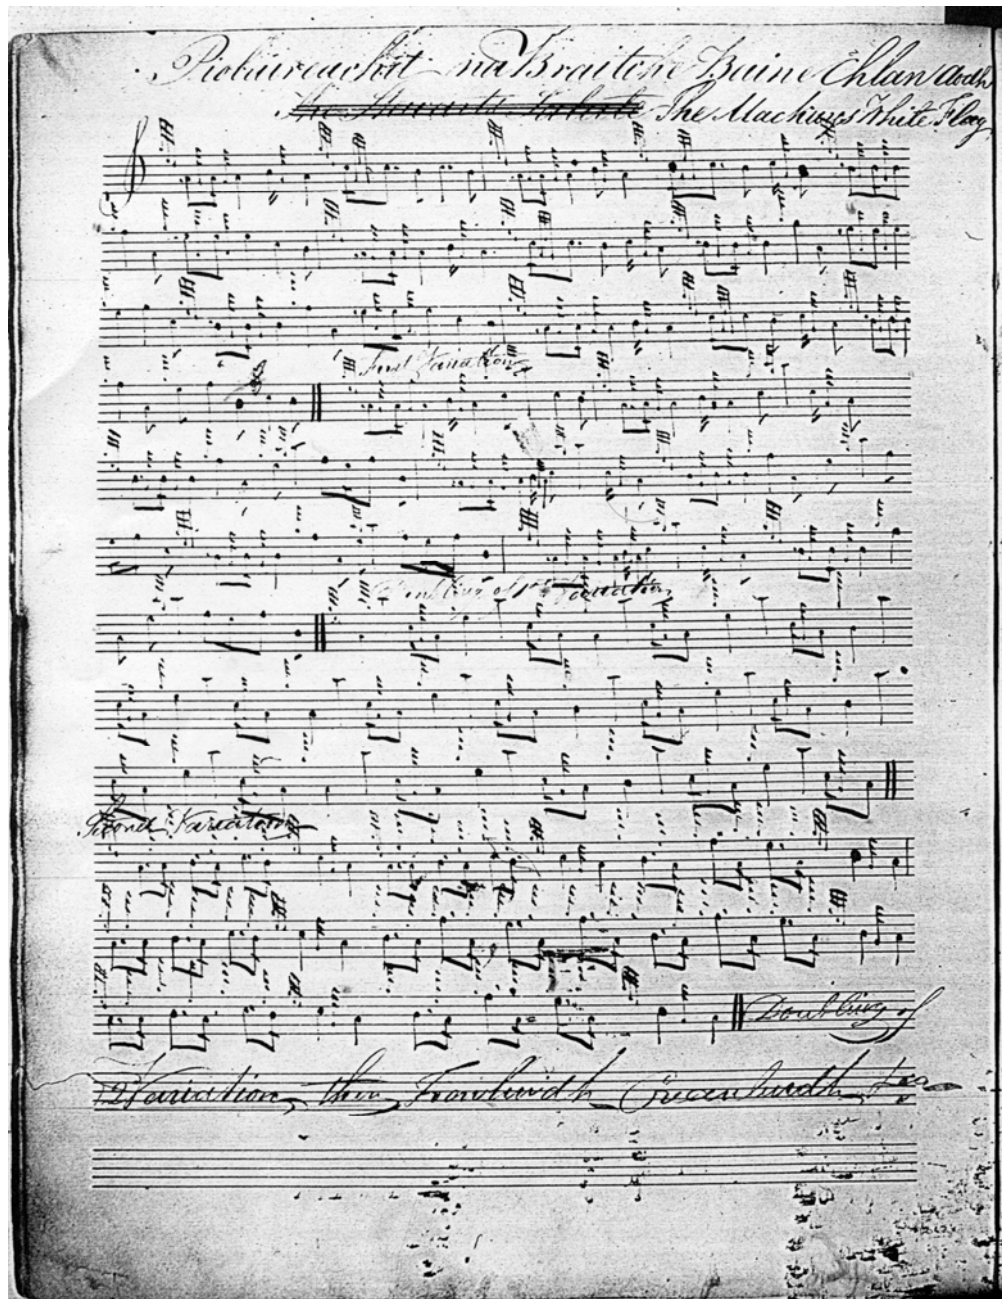 Piobaireachd na Braitche Baine Chlan Aodh
The Mackays White Flag
First Variation
Doubling of 1st Variation
Second Variation
Doubling of
2 Variation then